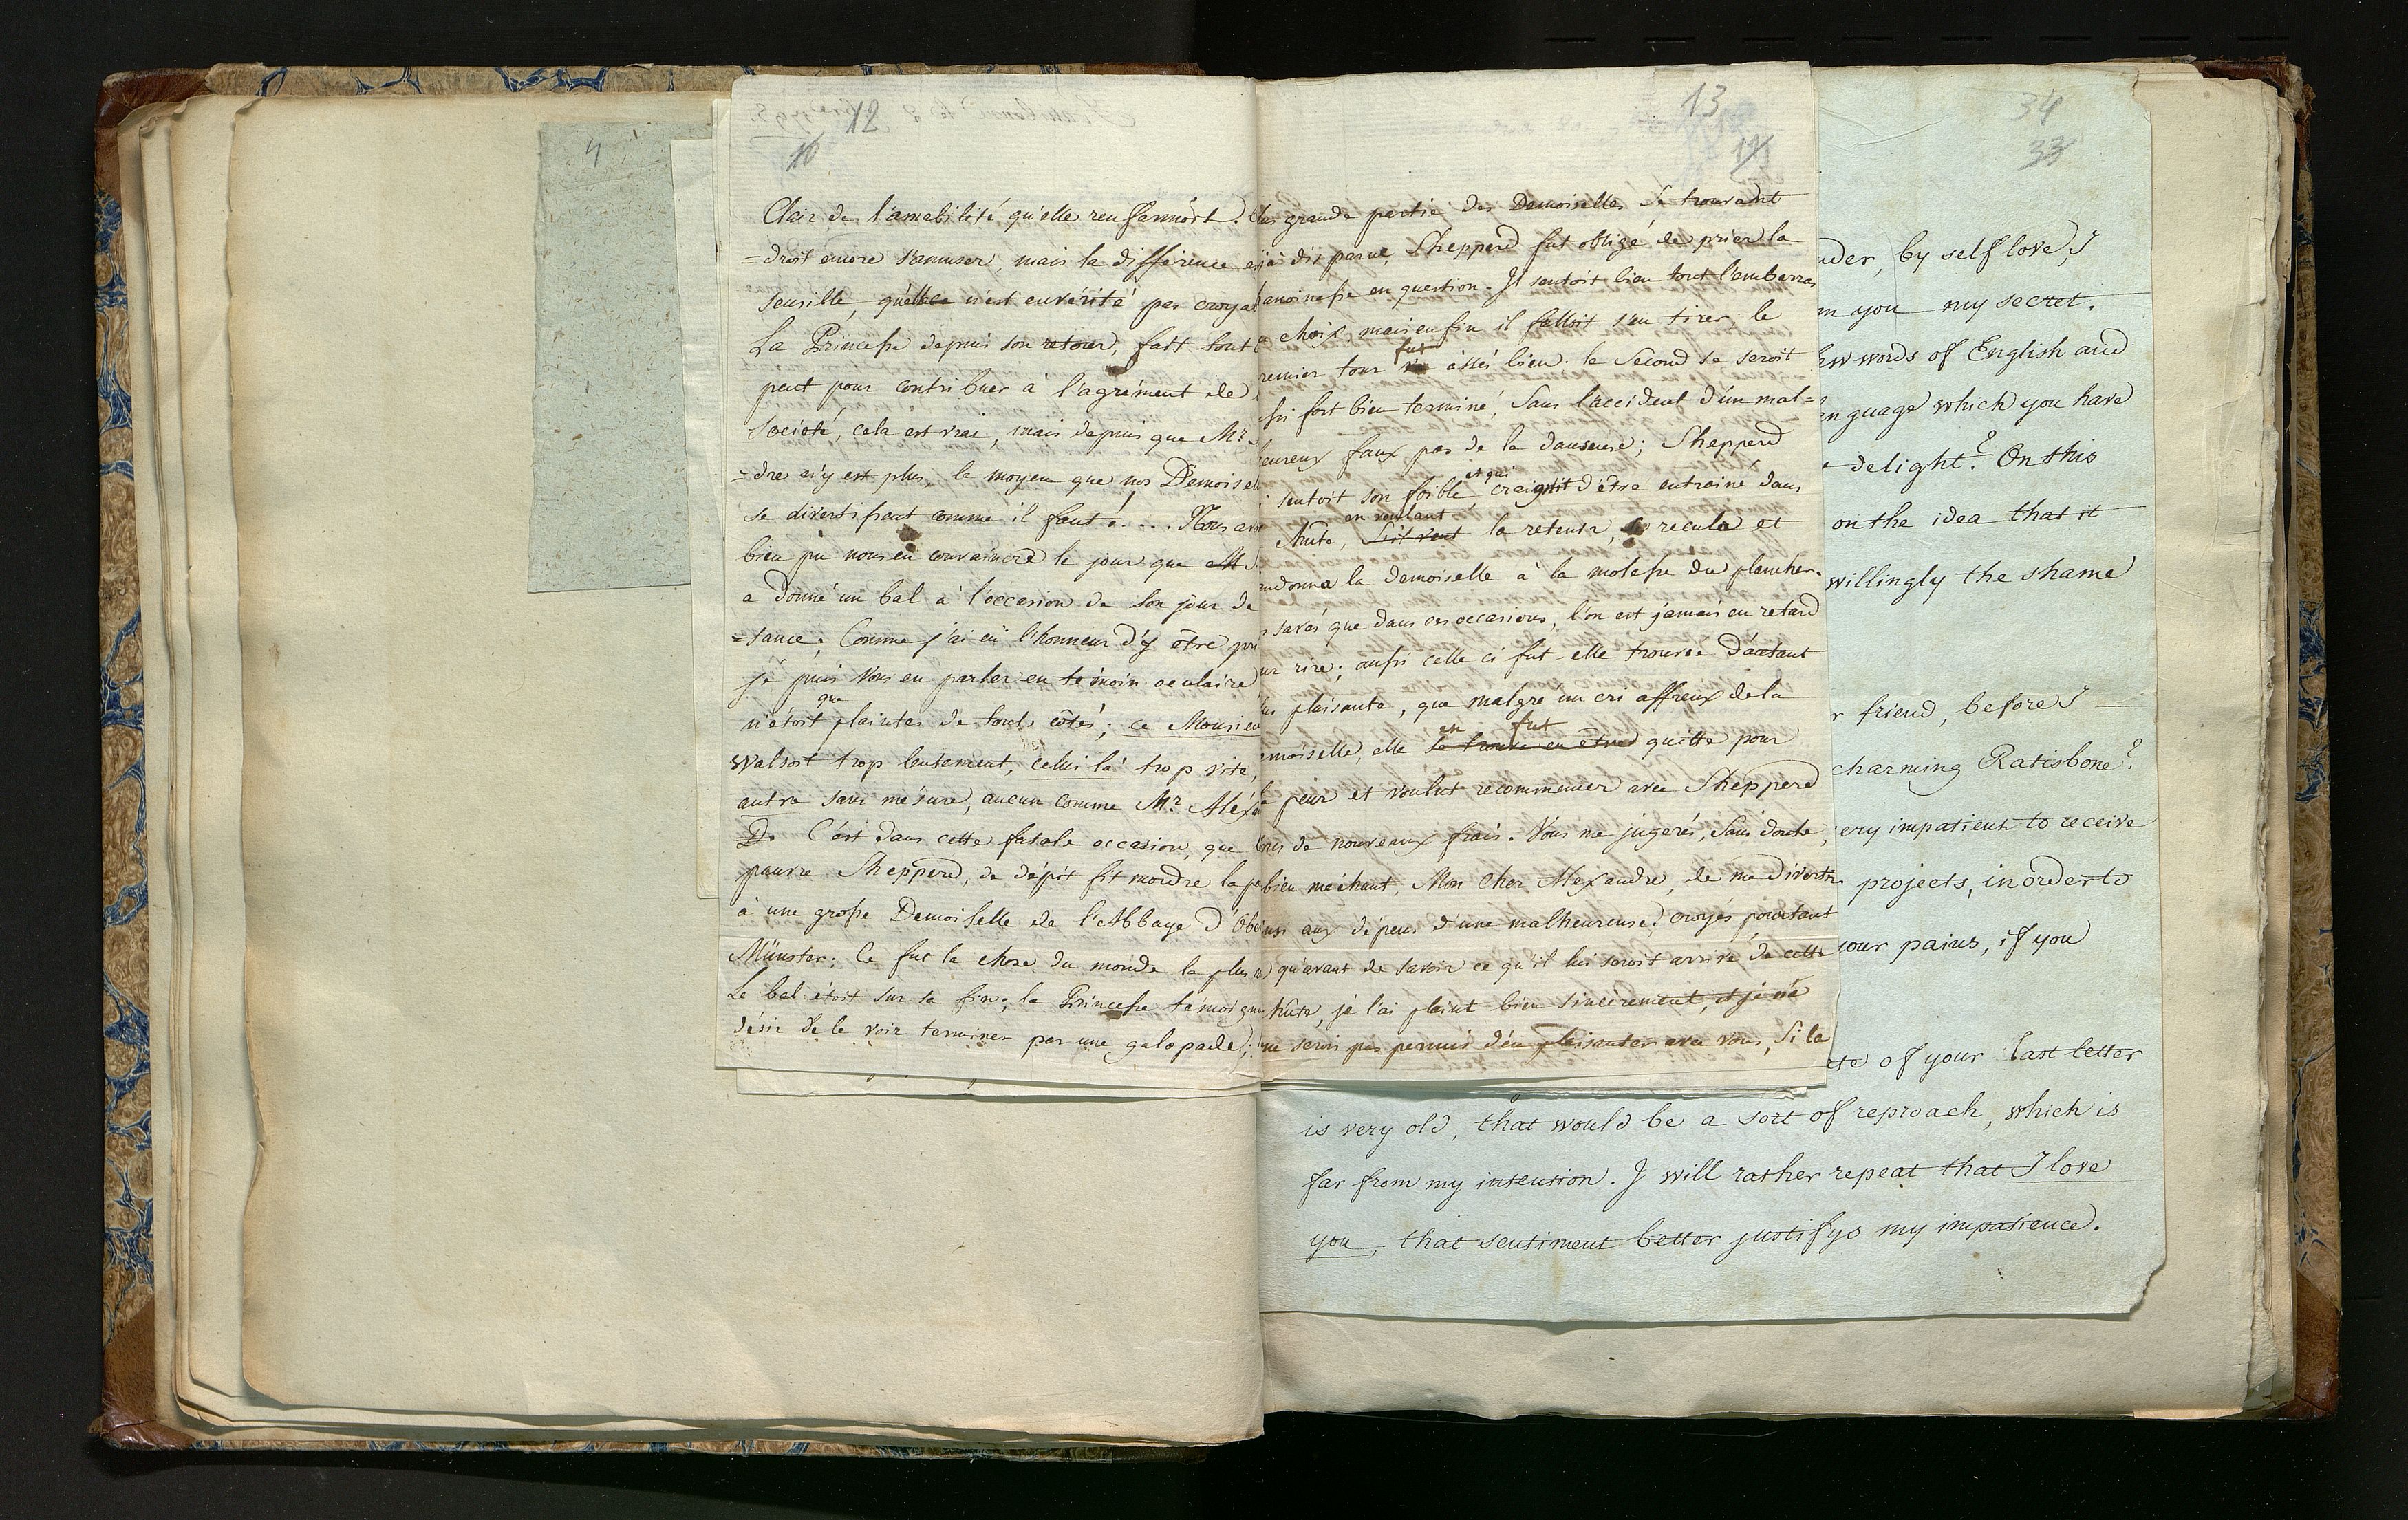 4
12
16
Clair de l'amabilité qu'elle renfermoit.
=droit encore s'amuser, mais la différence e
sensible, qu'elle n'est en vérité pas croya
La Princesse depuis son retour, fait tout
peut pour contribuer à l'agrément de
Societé, cela est vrai, mais depuis que Mr.
=dre n'y est plus, le moyen que nos Demoisel
se divertissent comme il faut! ... Nous avo
bien pu nous en convaincre le jour que
a donné un bal à l'occasion de Son jour de
=sance; Comme j'ai eü l'honneur d'y être pré
je puis Vous en parler en témoin oculaire
que
n'étoit plaintes de touts côtés; ce Monsieu
Walsoit trop lentement, celui là trop vite,
autre sans mésure, aucun comme Mr. Aléxa
D. C'est dans cette fatale occasion, que
pauvre Shepperd, de dépit fit mordre la po
à une grosse Demoiselle de l'Abbaye d'Obe
Münster; Ce fut la chose du monde la plus
Le bal étoit sur sa fin; la Princesse témoigna
désir de le voir terminer par une galopade;
13
lus grande partie des Demoiselles se trouvant
jà disparue, Shepperd fut obligé de prier la
anoinesse en question. Il sentoit bien tout l'embarras
choix, mais enfin il falloit s'en tirer; le
fut
remier tour assés bien; le Second se seroit
ssi fort bien terminé, Sans l'accident d'un mal=
eureux faux pas de la danseuse; Shepperd
et qui
sentoit son foible craignit d'être entrainé dans
en voulant
chute, la retenir, recula et
andonna la demoiselle à la molesse du plancher.
s savés que dans ces occasions, l'on est jamais en retard
ur rire; aussi celle ci fut-elle trouvée d'autant
us plaisante, que malgré un cri affreux de la
en fut
emoiselle, elle se trouve en être quitte pour
peur et voulut recommencer avec Shepperd
de nouveaux frais. Vous me jugerés, Sans doute,
bien méchant, Mon Cher Alexandre, de me divertir
insi aux dépens d'une malheureuse! croyés pourtant
qu'avant de savoir ce qu'il lui seroit arrivé de cette
hute, je l'ai plaint bien sincèrement, et je ne
me serois pas permis d'en plaisanter avec vous, Si la
34
33
uder, by self love, I
m you my secret.
ew words of English and
enguage which you have
delight? On this
on the idea that it
willingly the shame
r friend, before I
charming Ratisbone?
ery impatient to receive
projects, in order to
your pains, if you
ate of your last letter
is very old, that would be a sort of reproach, which is
far from my intension. I will rather repeat that I love
you, that sentiment better justifys my impatience.